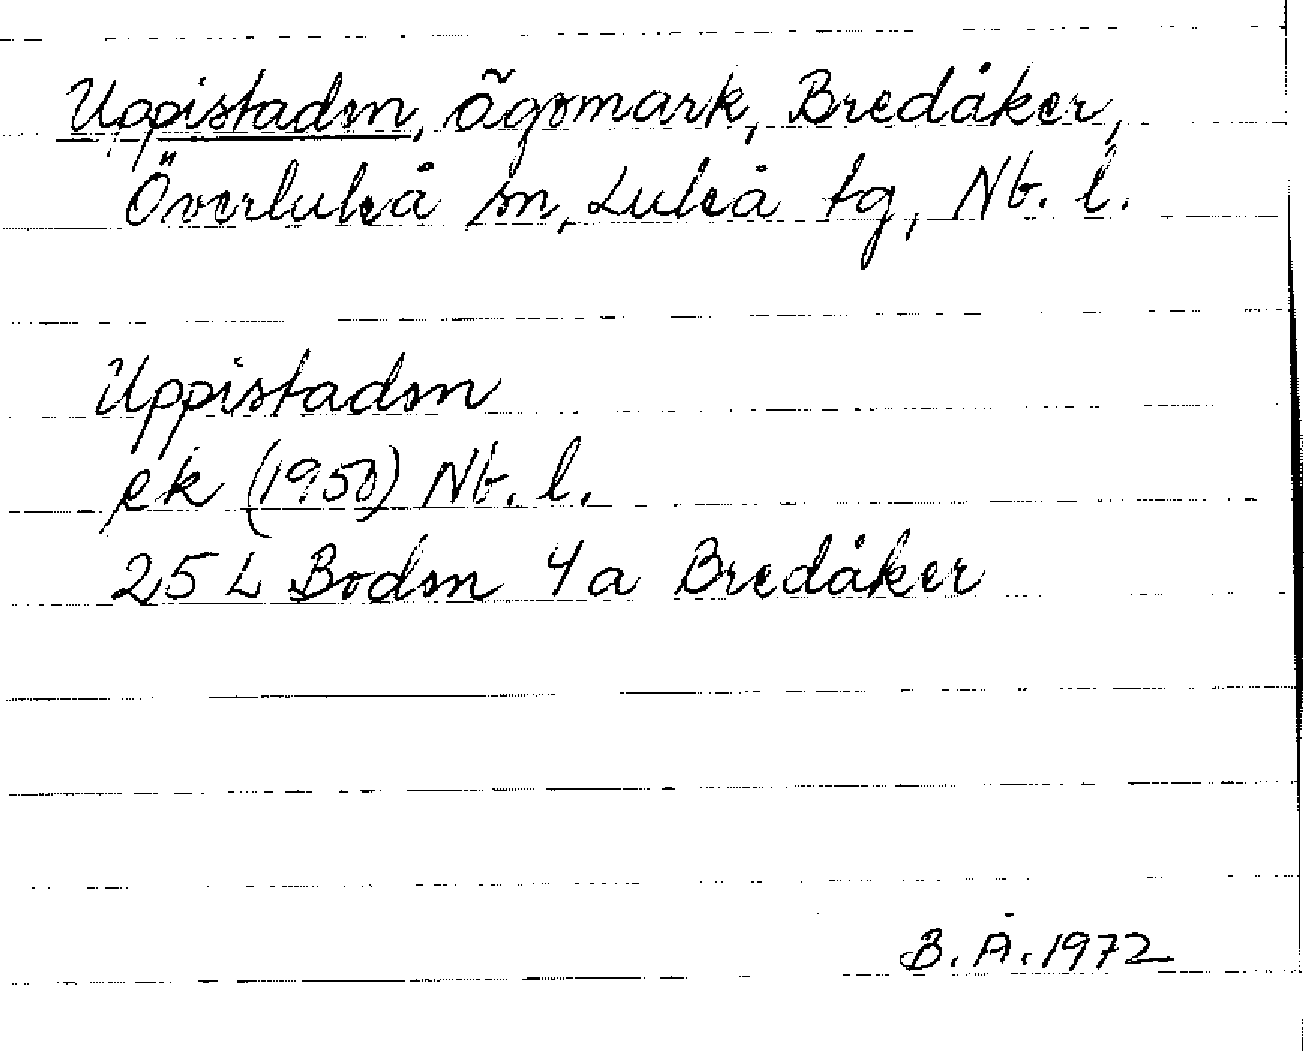 Uppistaden, ägomark, Bredåker,
Överluleå sn, Luleå tg, Nb. l.
Uppistaden
ek (1950) Nb. l.
25 L Boden 4a Bredåker
B. Å. 1972